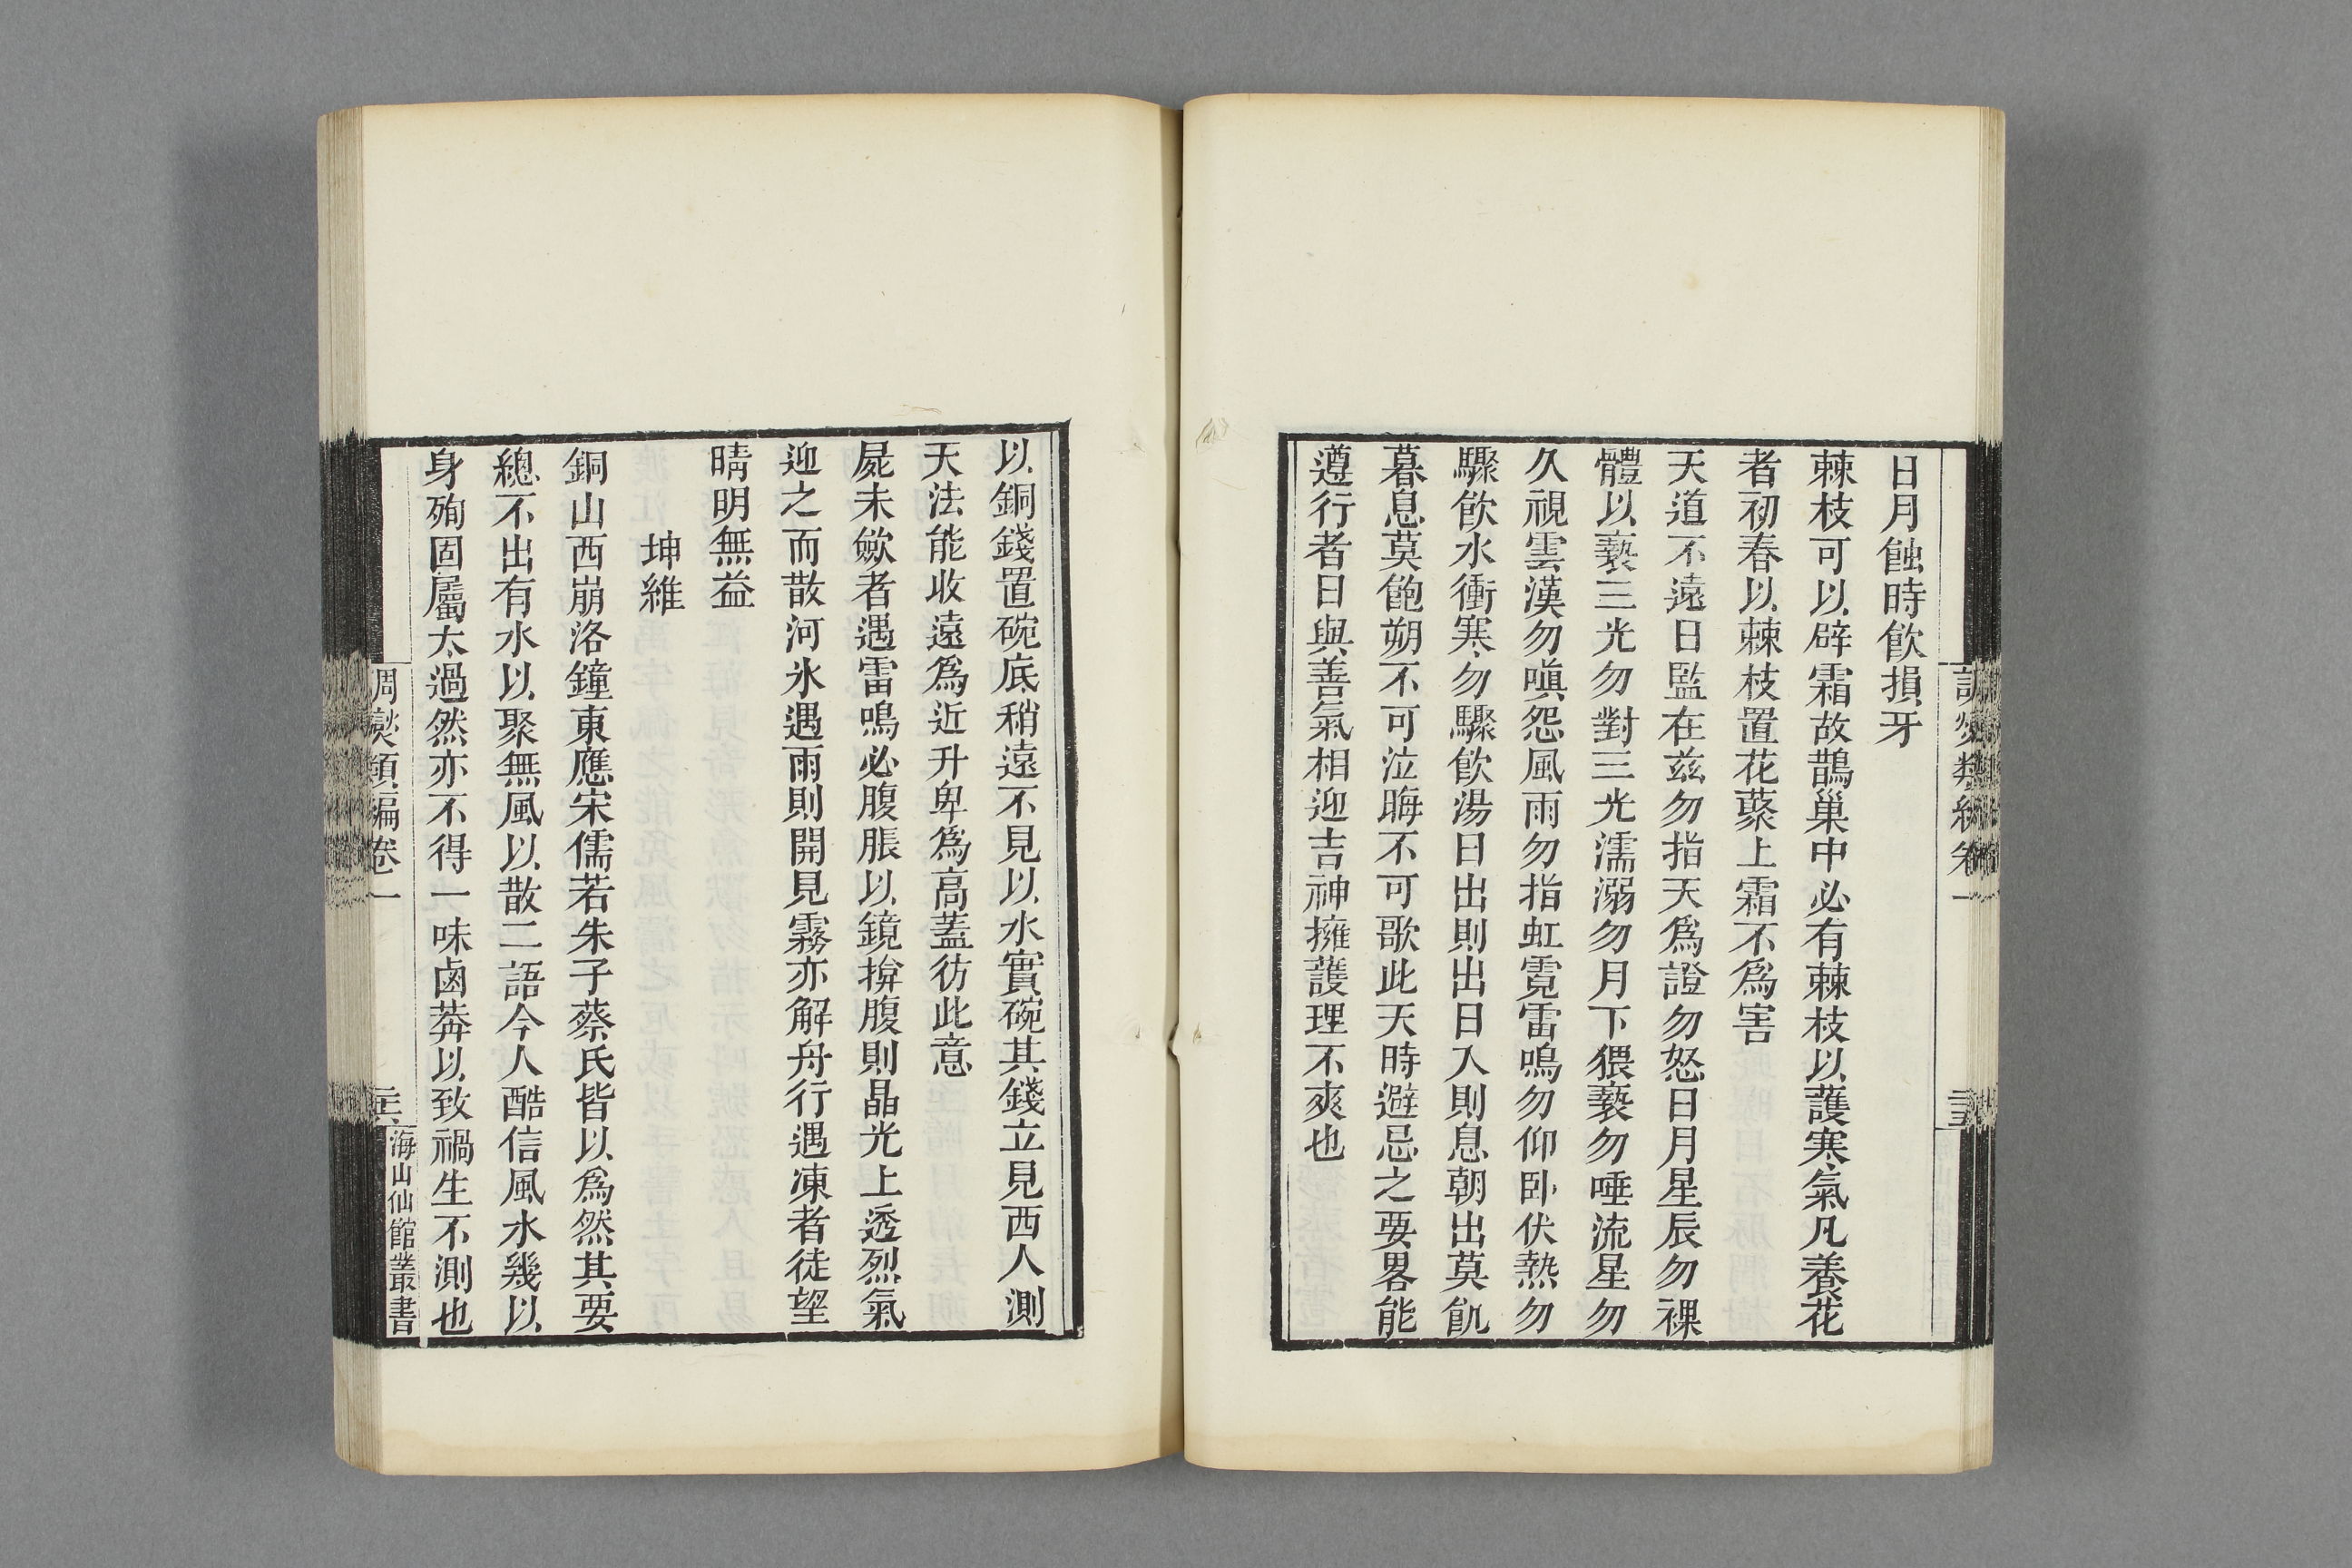 日月蝕時飲損牙
棘枝可以辟霜故鵲巢中必有棘枝以護寒氣凡養花
者初春以棘枝置花蕠上霜不爲害
天道不遠日監在玆勿指天爲證勿怒日月星辰勿裸
體以褻三光勿對三光濡溺勿月下猥褻勿唾流星勿
久視雲漢勿嗔怨風雨勿指虹霓雷鳴勿仰卧伏熱勿
驟飲水衝寒勿驟飲湯日出則出日入則息朝出莫飢
暮息莫飽朔不可泣晦不可歌此天時避忌之要畧能
遵行者日與善氣相迎吉神擁護理不爽也
以銅錢置碗底稍遠不見以水實碗其錢立見西人測
天法能收遠爲近升卑爲高蓋彷此意
屍未歛者遇雷鳴必腹脹以鏡揜腹則晶光上透烈氣
迎之而散河氷遇雨則開見霧亦解舟行遇凍者徒望
晴明無益
坤維
銅山西崩洛鐘東應宋儒若朱子蔡氏皆以爲然其要
總不出有水以聚無風以散二語今人酷信風水幾以
身殉固屬太過然亦不得一味鹵莽以致禍生不測也
調燮類編卷一
海山仙館叢書